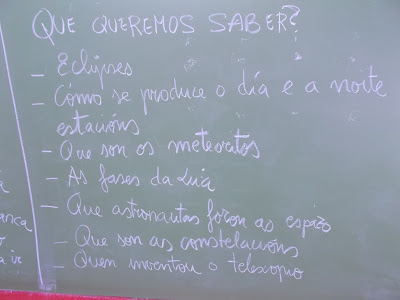 QUE QUEREMOS SABER?
- Eclipses
- Cómo se produce o día e a noite
estacións
- Que son os meteoritos
- As fases da Lúa
- Que astronautas foron as espazo
- Que son as constelacións
- Quen inventou o telescopio
anca
o
a ir